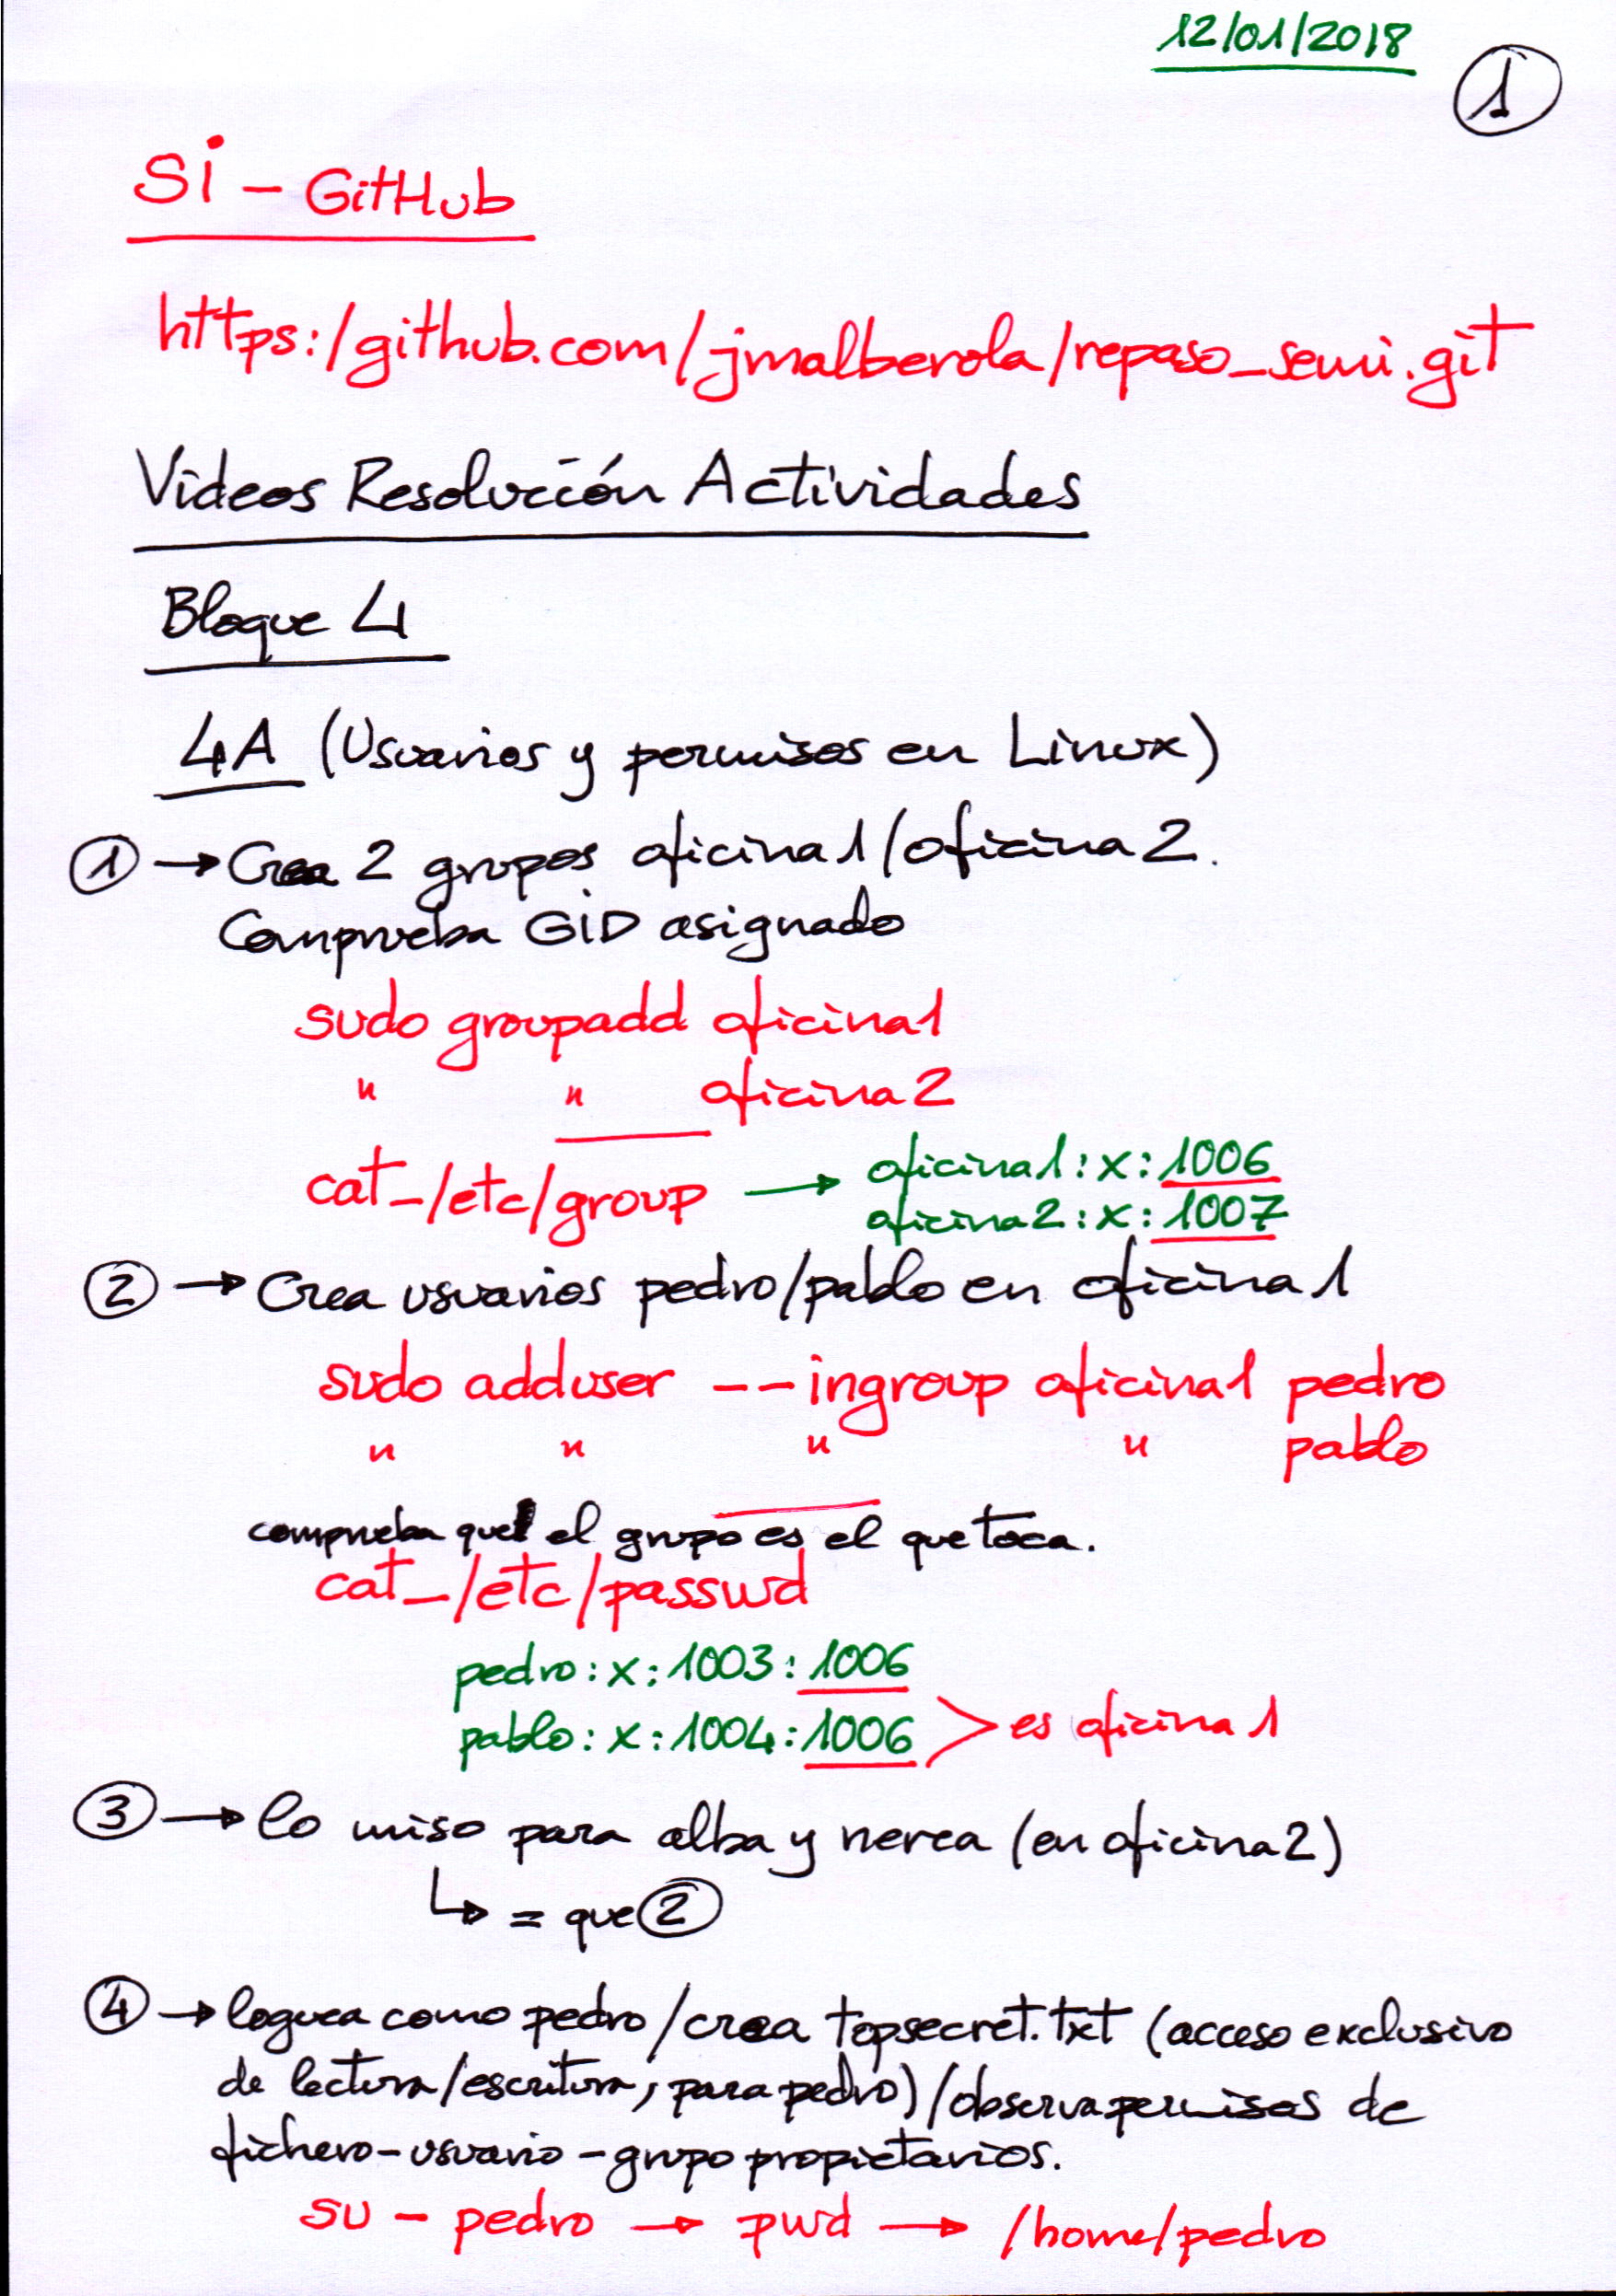 12/01/2018
1
Si - GitHub
https:/github.com/jmalberola/repaso_semi.git
Videos Resolución Actividades
Bloque 4
4A (Usuarios y permisos en Linux)
1 → Crea 2 grupos oficina1/oficina2.
Comprueba GiD asignado
sudo groupadd oficina1
" " oficina2
cat_/etc/group → oficina1:x:1006
oficina2:x:1007
2 → Crea usuarios pedro/pablo en oficina1
sudo adduser --ingroup oficina1 pedro
" " " " pablo
comprueba que el grupo es el que toca.
cat_/etc/passwd
pedro:x:1003:1006
pablo:x:1004:1006 > es oficina1
3 → lo miso para alba y nerea (en oficina2)
↳ = que 2
4 → loguea como pedro/crea topsecret.txt (acceso exclusivo
de lectura/escritura, para pedro)/observa permisos de
fichero-usuario-grupo propietarios.
su - pedro → pwd → /home/pedro